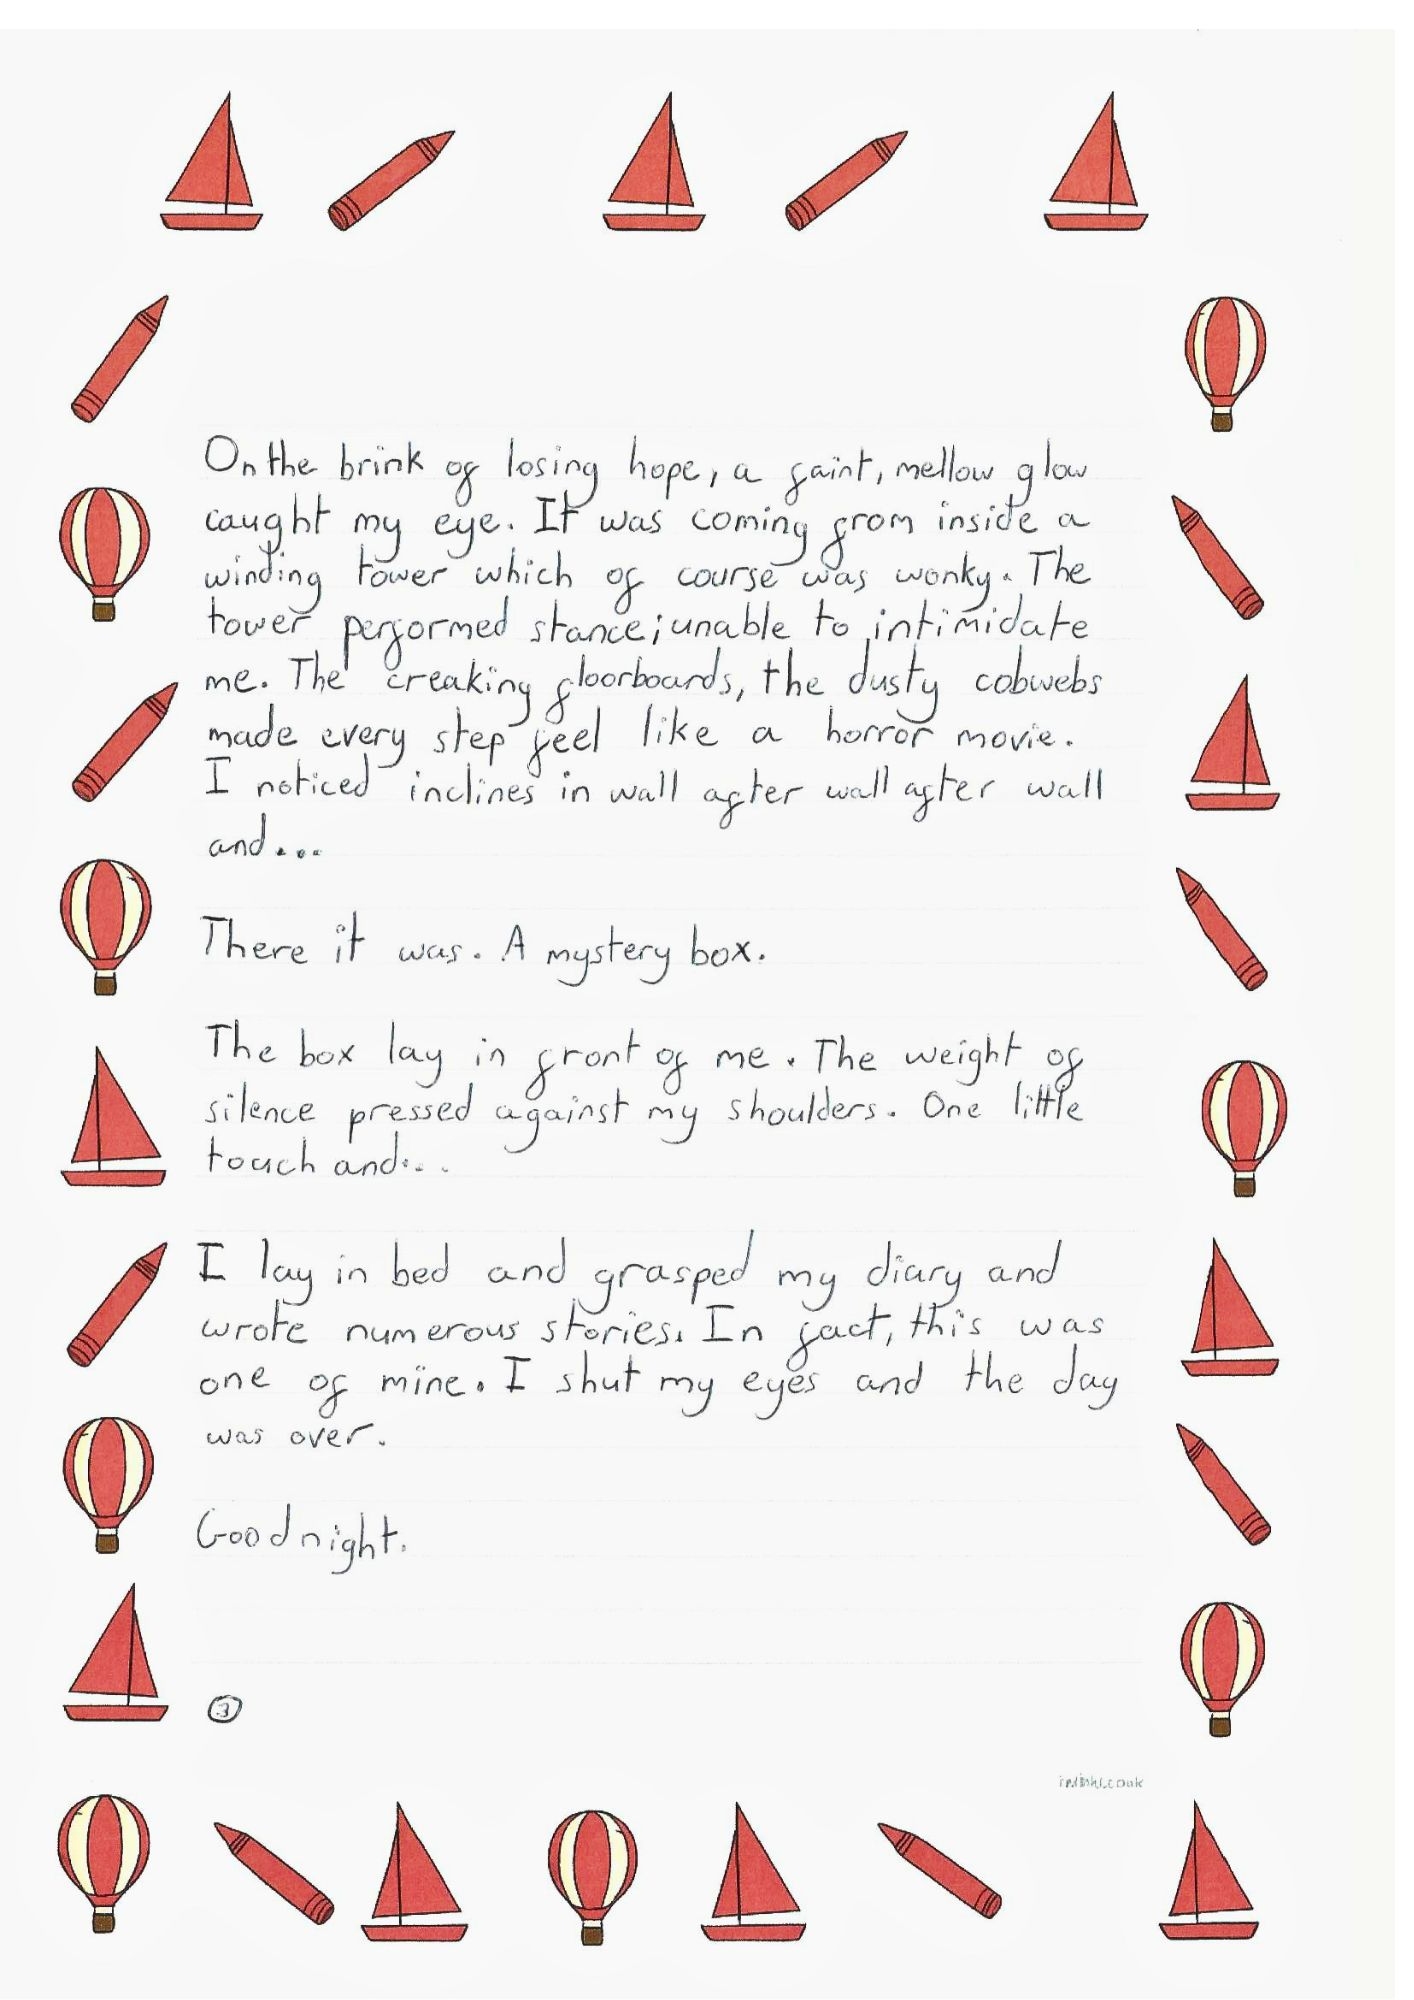 On the brink of losing hope, a faint, mellow glow
caught my eye. It was coming from inside a
winding tower which of course was wonky. The
tower performed stance; unable to intimidate
me. The creaking floorboards, the dusty cobwebs
made every step feel like a horror movie.
I noticed inclines in wall after wall after wall
and...
There it was. A mystery box.
The box lay in front of me. The weight of
silence pressed against my shoulders. One little
touch and...
I lay in bed and grasped my diary and
wrote numerous stories. In fact, this was
one of mine. I shut my eyes and the day
was over.
Goodnight.
3